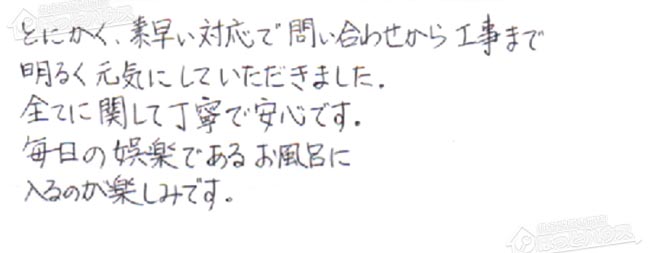 とにかく、素早い対応で問い合わせから工事まで
明るく元気にしていただきました。
全てに関して丁寧で安心です。
毎日の娯楽であるお風呂に
入るのが楽しみです。